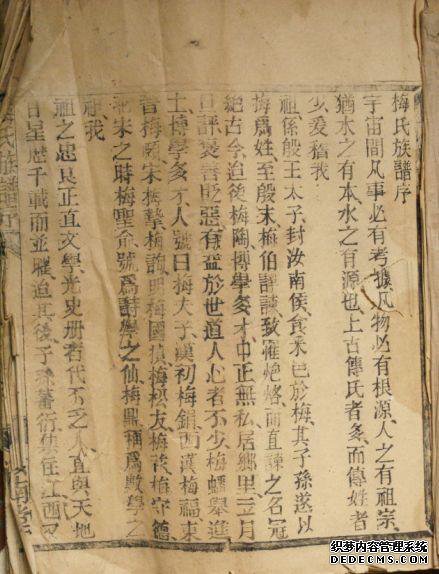 梅氏族譜序
宇宙間凡事必有考據凡物必有根源人之有祖宗
猶水之有本水之有源也上古傳氏者多而傳姓者
少爰稽我
祖係殷王太子封汝南侯食采邑於梅其子孫遂以
梅爲姓至殷末梅伯評諫致罹炮烙而直諫之名冠
絕古今迨後梅陶博學多才中正無私居鄉里立月
旦評褒善貶惡有益於世道人心者不少梅蟠舉進
士博學多才人號曰梅夫子漢初梅鋗西漢梅福東
晉梅頤宋梅摯梅詢明梅國楨梅友梅梅守德
宋之時梅聖俞號爲詩學之仙梅鼎稱爲數學之
我
祖之忠良正直文學光史册者代不乏人直與天地
日星歷千載而並耀迨其後子孫蕃衍住江西
梅氏族譜序